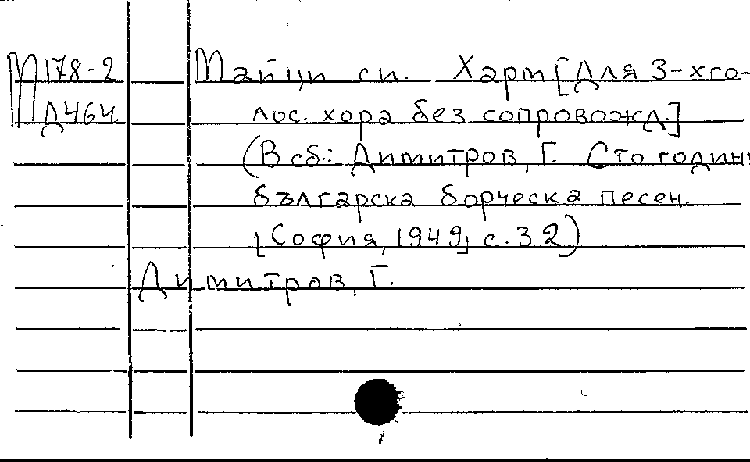 М178-2 Майци си. Харм[Для 3-хго-
Д464 лос. хора без сопровожд.]
(В сб.: Димитров, Г. Сто годин
българска борческа песен.
[София, 1949] с. 32)
Димитров, Г.